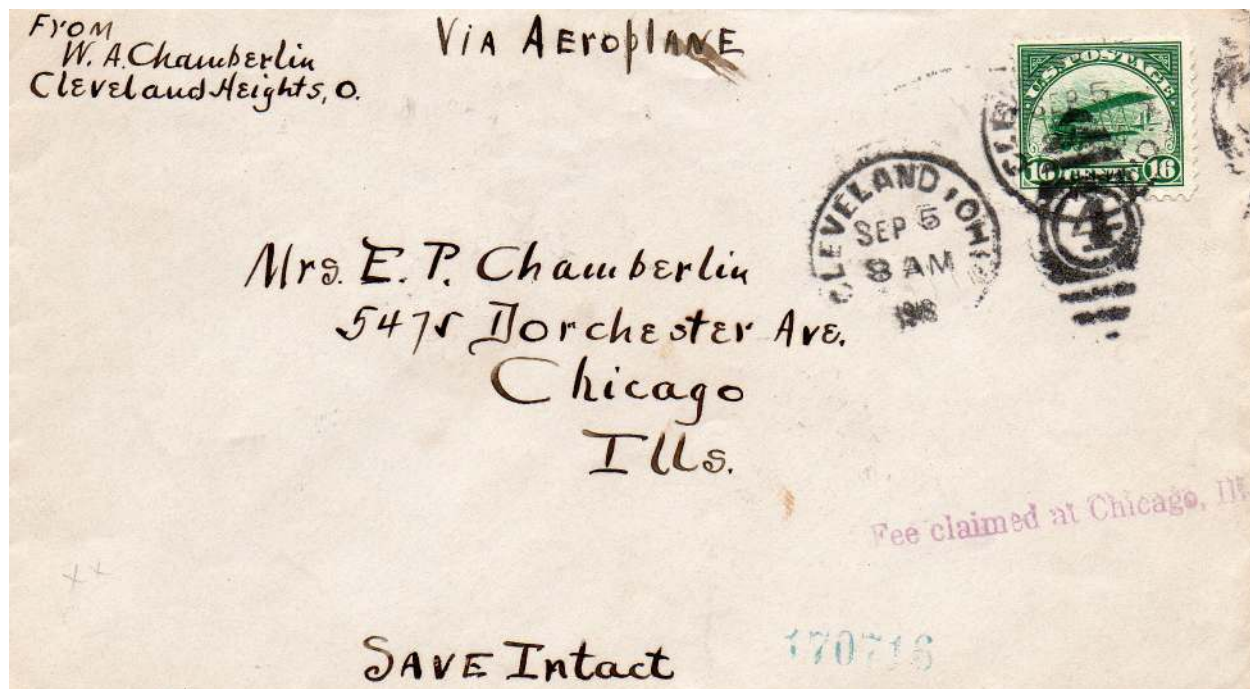 From
W. A. Chamberlin
Cleveland Heights, O.
Via Aeroplane
U.S. POSTAGE
SEP 5
16 CENTS 16
CLEVELAND, OHIO
SEP 5
8 AM
1918
4
Mrs. E. P. Chamberlin
5475 Dorchester Ave.
Chicago
Ills.
Fee claimed at Chicago, Ill
xx
Save Intact
170716